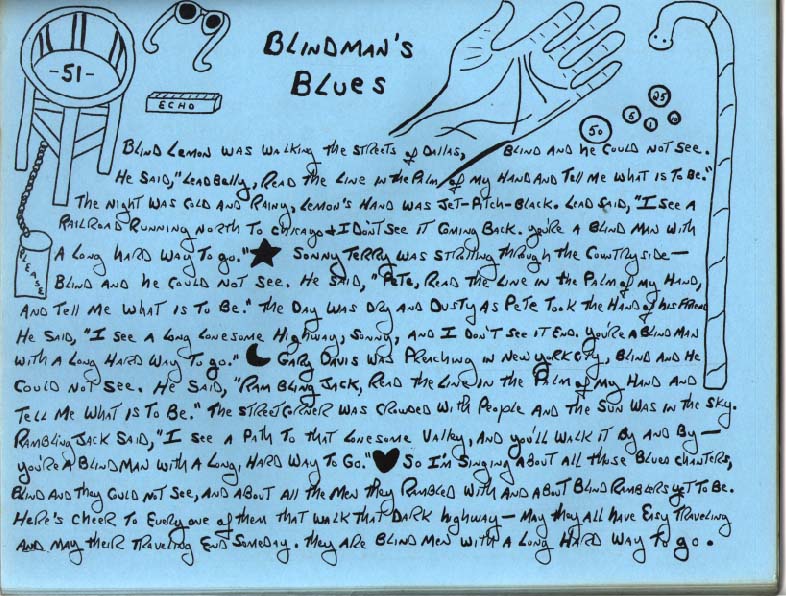 BLINDMAN'S
BLUES
-51-
ECHO
25
5
1
10
50
PLEASE
BLIND LEMON WAS WALKING THE STREETS of DALLAS, BLIND AND HE COULD NOT SEE.
HE SAID, "LEADBELLY, READ THE LINE IN THE PALM of MY HAND AND TELL ME WHAT IS TO BE."
THE NIGHT WAS COLD AND RAINY, LEMON'S HAND WAS JET-PITCH-BLACK. LEAD SAID, "I SEE A
RAILROAD RUNNING NORTH TO CHICAGO & I DON'T SEE IT COMING BACK. YOU'RE A BLIND MAN WITH
A LONG HARD WAY TO GO." ★ SONNY TERRY WAS STRUTTING THROUGH THE COUNTRYSIDE—
BLIND AND HE COULD NOT SEE. HE SAID, "PETE, READ THE LINE IN THE PALM of MY HAND,
AND TELL ME WHAT IS TO BE." THE DAY WAS DRY AND DUSTY AS PETE TOOK THE HAND of HIS FRIEND
HE SAID, "I SEE A LONG LONESOME HIGHWAY, SONNY, AND I DON'T SEE IT END. YOU'RE A BLIND MAN
WITH A LONG HARD WAY TO GO." ☾ GARY DAVIS WAS PREACHING IN NEW YORK CITY, BLIND AND HE
COULD NOT SEE. HE SAID, "RAMBLING JACK, READ THE LINE IN THE PALM of MY HAND AND
TELL ME WHAT IS TO BE." THE STREETCORNER WAS CROWDED WITH PEOPLE AND THE SUN WAS IN THE SKY.
RAMBLING JACK SAID, "I SEE A PATH TO THAT LONESOME VALLEY, AND YOU'LL WALK IT BY AND BY—
YOU'RE A BLINDMAN WITH A LONG, HARD WAY TO GO." ♥ SO I'M SINGING ABOUT ALL THOSE BLUES CHANTERS,
BLIND AND THEY COULD NOT SEE, AND ABOUT ALL THE MEN THEY RAMBLED WITH AND ABOUT BLIND RAMBLERS YET TO BE.
HERE'S CHEER TO EVERYONE of THEM THAT WALK THAT DARK HIGHWAY— MAY THEY ALL HAVE EASY TRAVELING
AND MAY THEIR TRAVELING END SOMEDAY. THEY ARE BLIND MEN WITH A LONG HARD WAY TO GO.